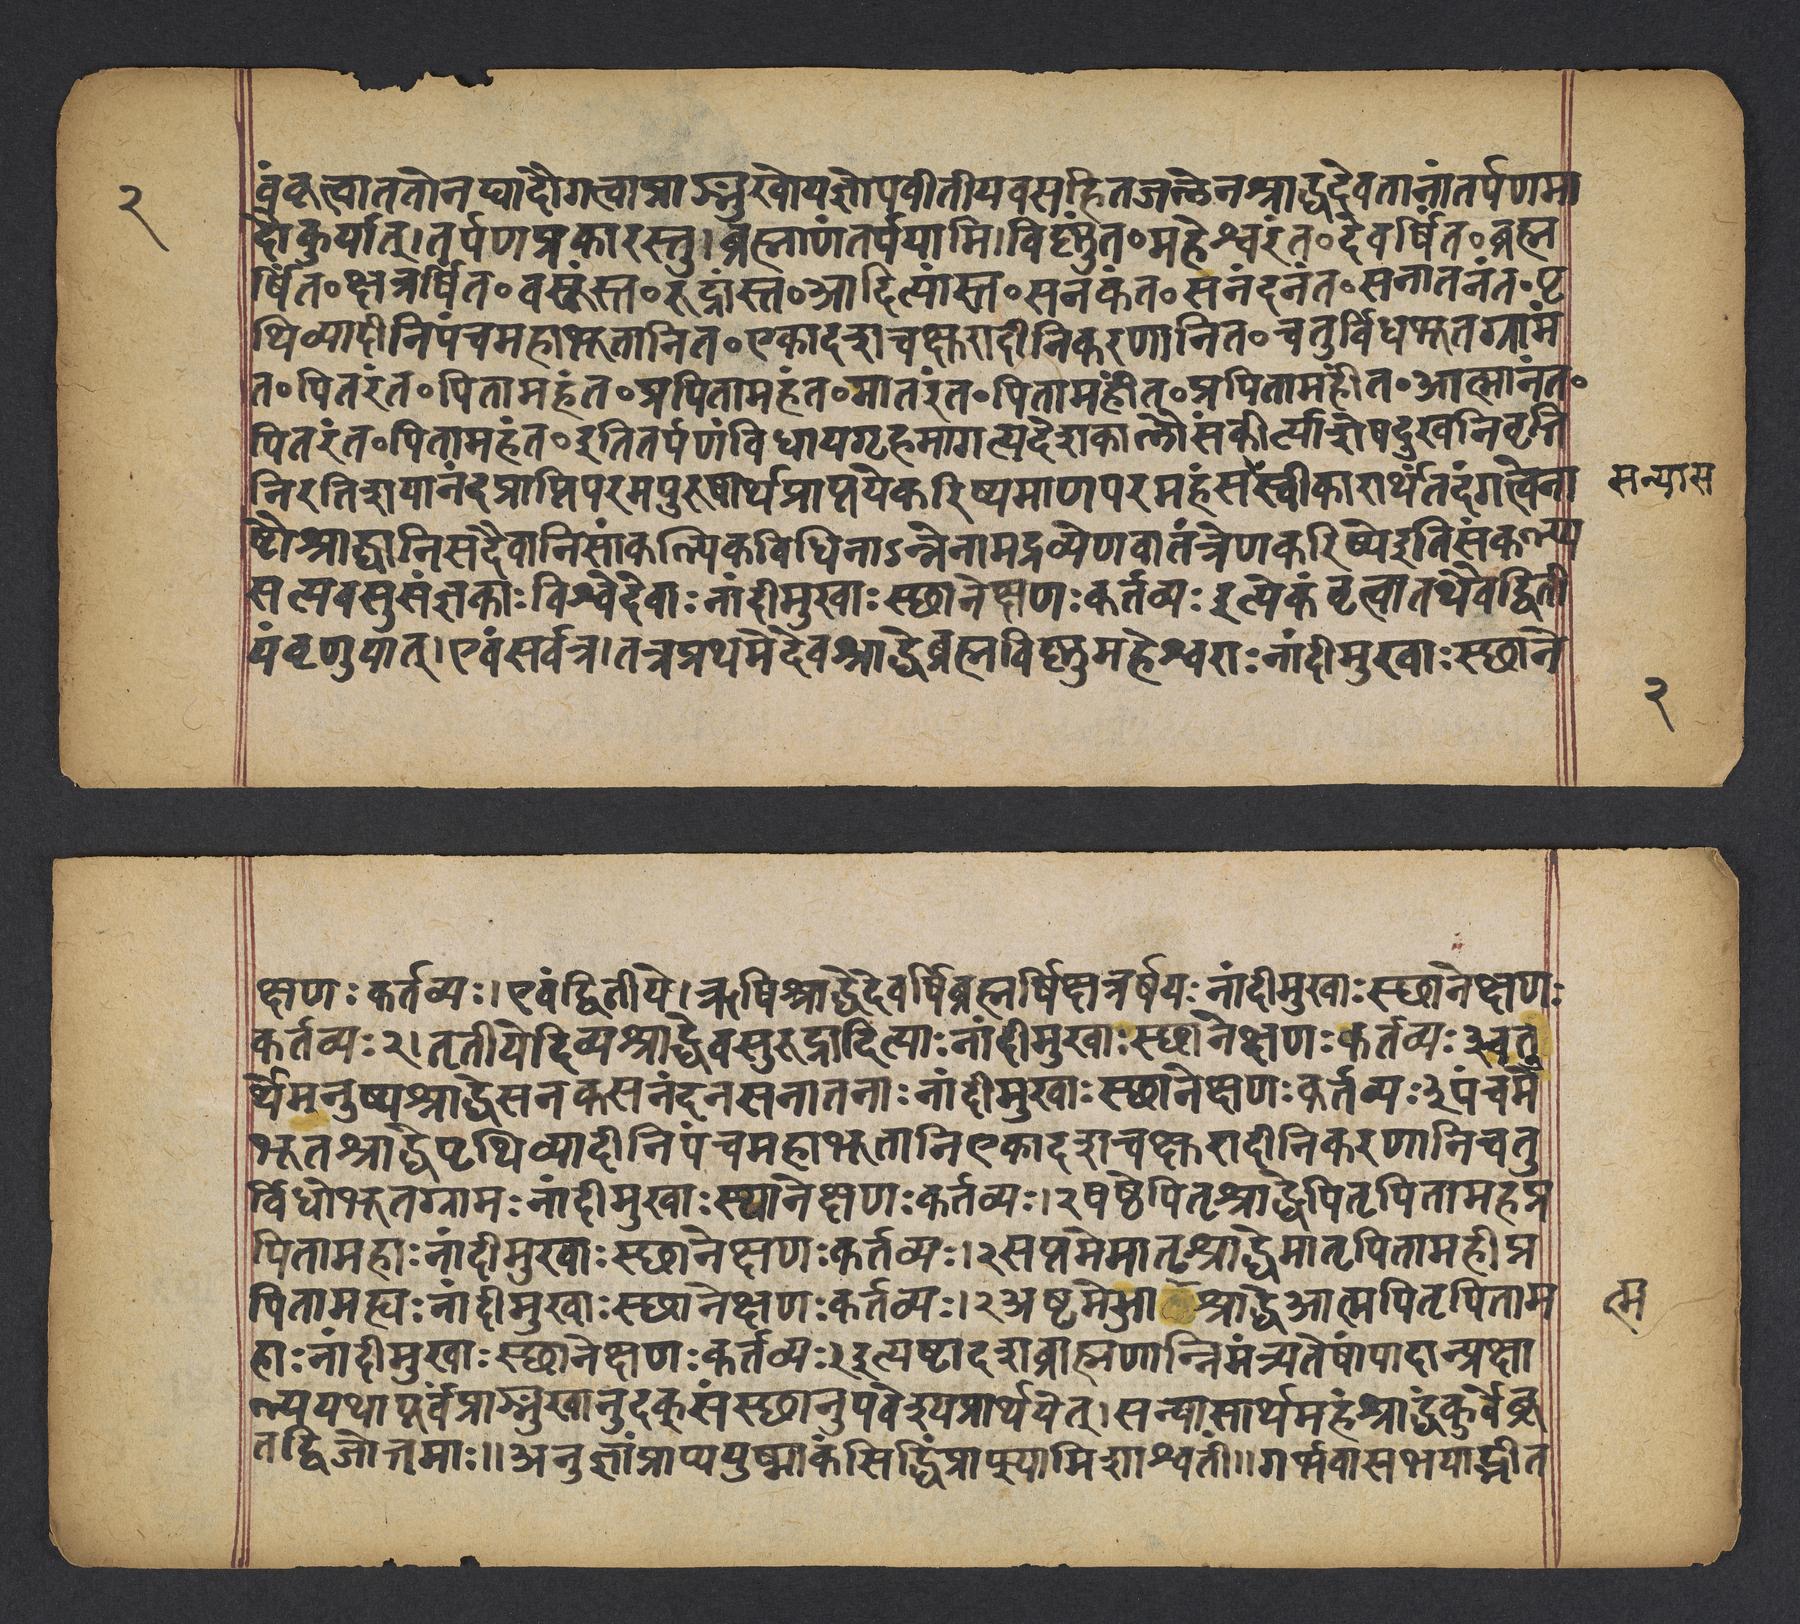 २
वंकृत्वाततोनद्यादौगत्वाप्राङ्मुखोयज्ञोपवीतीयवसहितजलेनश्राद्धदेवतानांतर्पणमा
दौकुर्यात्।तर्पणप्रकारस्तु।ब्रह्माणंतर्पयामि।विष्णुंत॰महेश्वरंत॰देवर्षिंत॰ब्रह्म
र्षिंत॰क्षत्रर्षिंत॰वसूंस्त॰रुद्रांस्त॰आदित्यांस्त॰सनकंत॰सनंदनंत॰सनातनंत॰पृ
थिव्यादीनिपंचमहाभूतानित॰एकादशचक्षुरादीनिकरणानित॰चतुर्विधभूतग्रामं
त॰पितरंत॰पितामहंत॰प्रपितामहंत॰मातरंत॰पितामहींत॰प्रपितामहींत॰आत्मानंत॰
पितरंत॰पितामहंत॰इतितर्पणंविधायगृहमागत्यदेशकालौसंकीर्त्याशेषदुखनिवृत्ति
निरतिशयानंदप्राप्तिपरमपुरुषार्थप्राप्तयेकरिष्यमाणपरमहंसस्वीकारार्थंतदंगत्वेना
सन्यास
ष्टौश्राद्धानिसदैवानिसांकल्पिकविधिनाऽन्नेनामद्रव्येणवातंत्रेणकरिष्येइतिसंकल्प्य
सत्यवसुसंज्ञकाःविश्वेदेवाःनांदीमुखाःस्छानेक्षणःकर्तव्यःइत्येकंवृत्वातथैवद्विती
यंवृणुयात्।एवंसर्वत्र।तत्रप्रथमेदेवश्राद्धेब्रह्मविष्णुमहेश्वराःनांदीमुखाःस्छाने
२
क्षणःकर्तव्यः।एवंद्वितीये।ऋषिश्राद्धेदेवर्षिब्रह्मर्षिक्षत्रर्षयःनांदीमुखाःस्छानेक्षणः
कर्तव्यः२।तृतीयेदिव्यश्राद्धेवसुरुद्रादित्याःनांदीमुखाःस्छानेक्षणःकर्तव्यः३चतु
र्थेमनुष्यश्राद्धेसनकसनंदनसनातनाःनांदीमुखाःस्छानेक्षणःकर्तव्यः३पंचमे
भूतश्राद्धेपृथिव्यादीनिपंचमहाभूतानिएकादशचक्षुरादीनिकरणानिचतु
र्विधोभूतग्रामःनांदीमुखाःस्थानेक्षणःकर्तव्यः।२षष्ठेपितृश्राद्धेपितृपितामहप्र
पितामहाःनांदीमुखाःस्छानेक्षणःकर्तव्यः।२सप्तमेमातृश्राद्धेमातृपितामहीप्र
पितामह्यःनांदीमुखाःस्छानेक्षणःकर्तव्यः।२अष्टमेआ श्राद्धेआत्मपितृपिताम
त्म
हाःनांदीमुखाःस्छानेक्षणःकर्तव्यः२इत्यष्टादशब्राह्मणान्निमंत्र्यतेषांपादान्प्रक्षा
ल्ययथापूर्वंप्राङ्मुखानुदक्संस्छानुपवेश्यप्रार्थयेत्।सन्यासार्थमहंश्राद्धंकुर्वेब्रू
तद्विजोत्तमाः॥अनुज्ञांप्राप्ययुष्माकंसिद्धिंप्राप्स्यामिशाश्वतीं॥गर्भवासभयाद्भीत